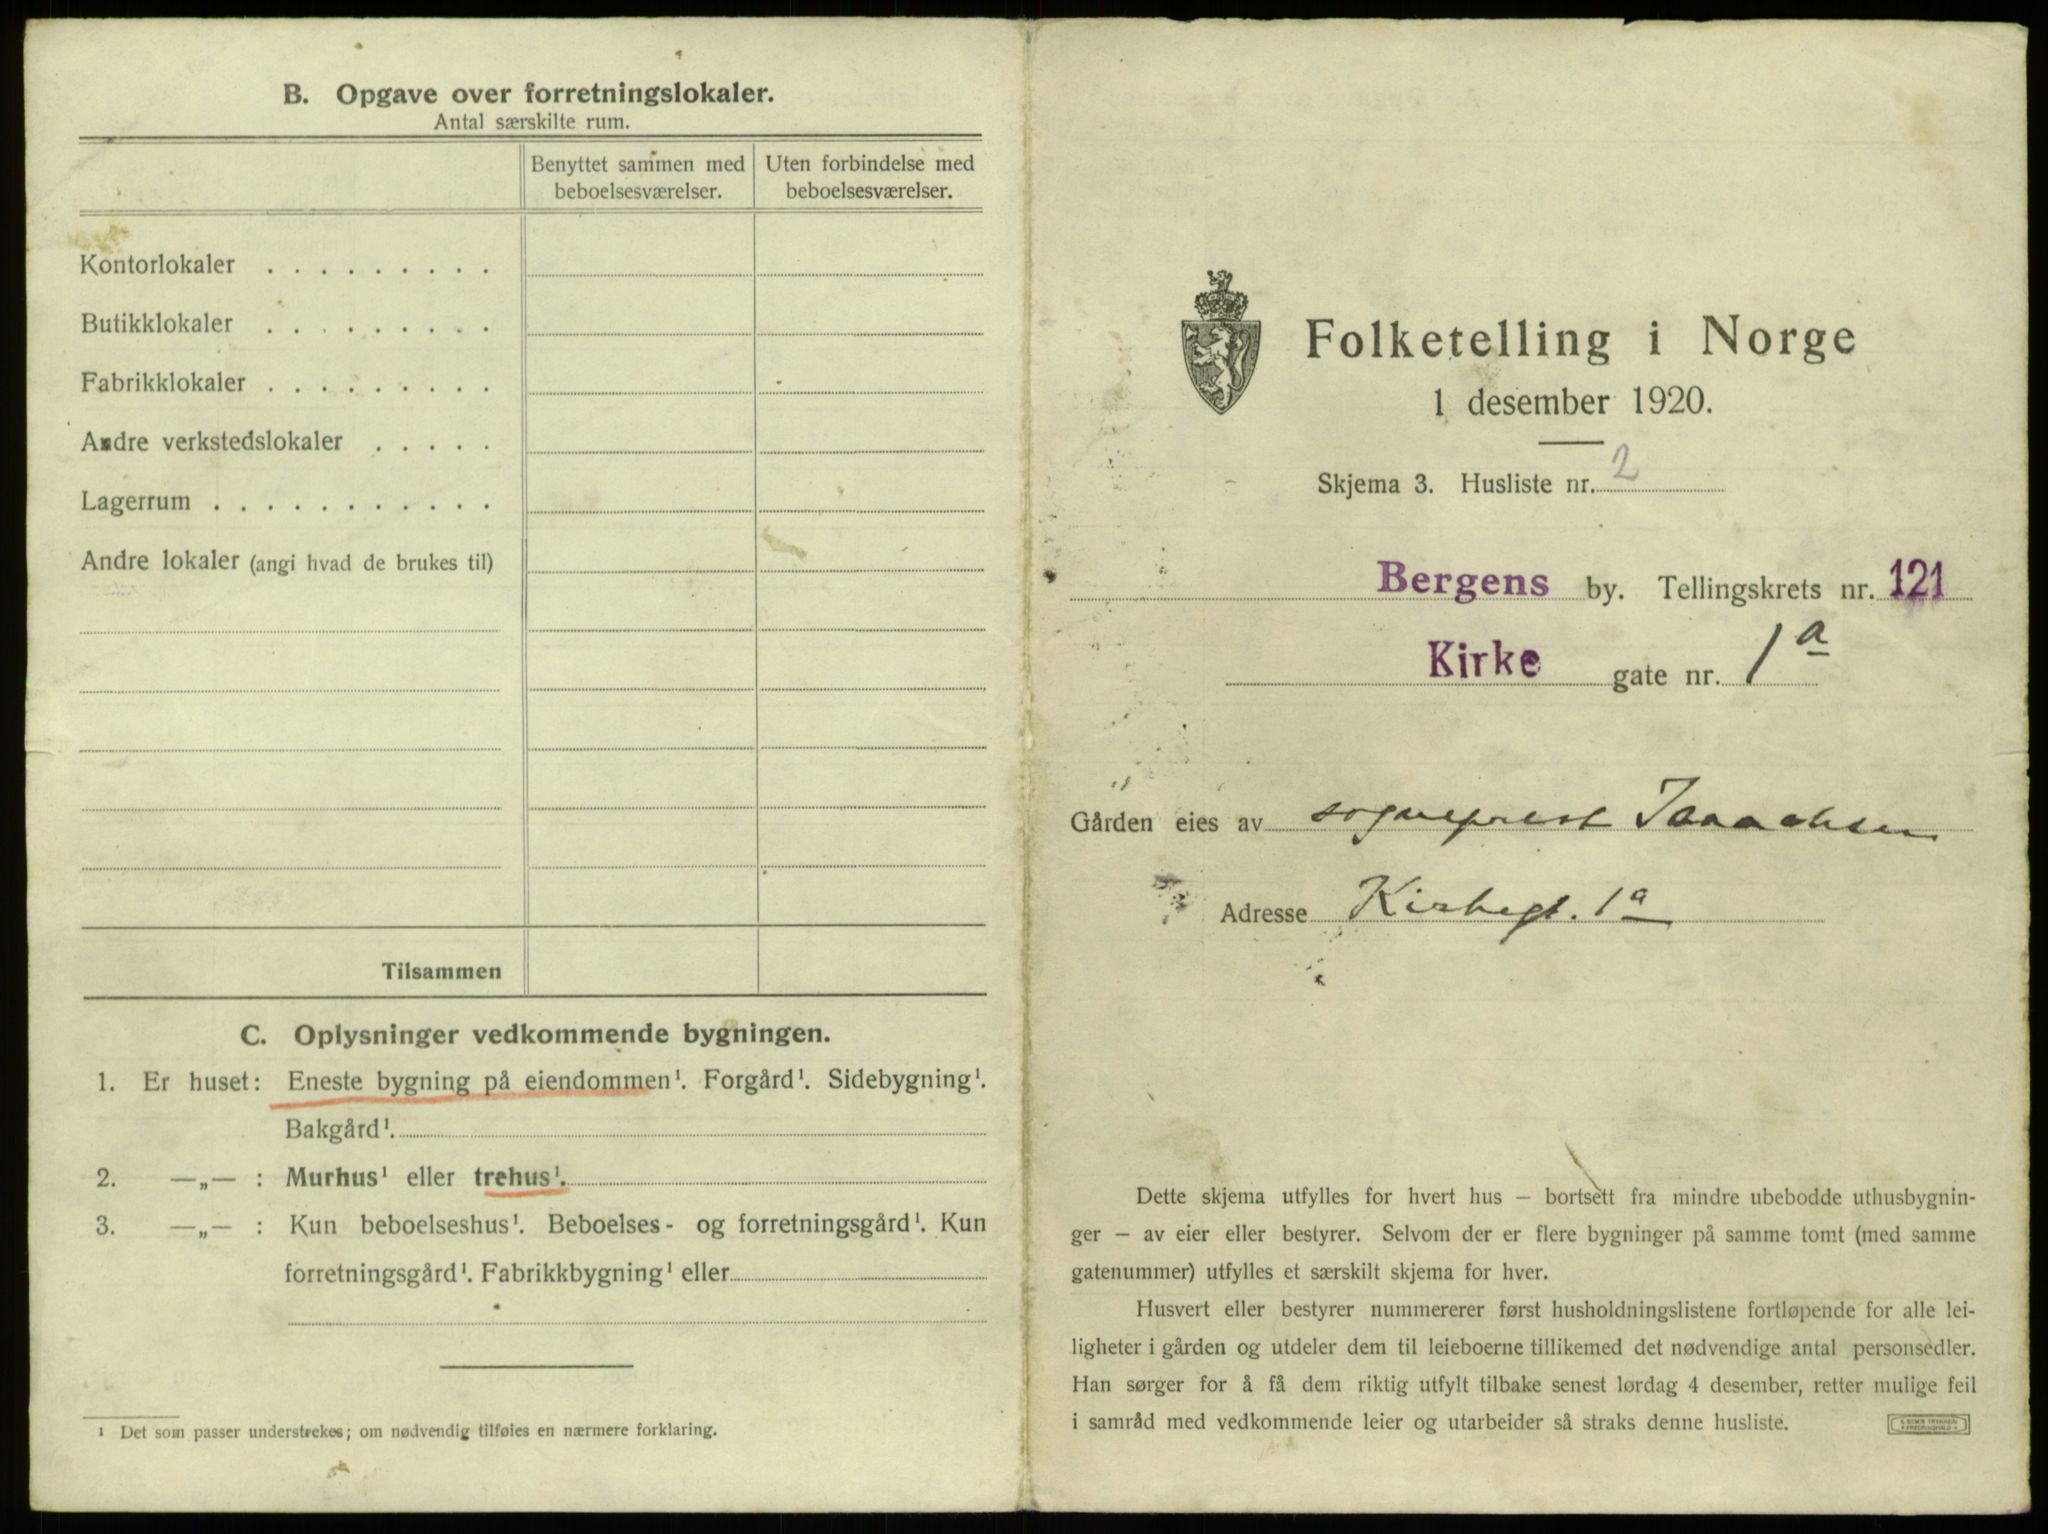 B. Opgave over forretningslokaler.
Antal særskilte rum.
Benyttet sammen med beboelsesværelser.
Uten forbindelse med beboelsesværelser.
Kontorlokaler . . . . . . . . .
Butikklokaler . . . . . . . . .
Fabrikklokaler . . . . . . . . .
Andre verkstedslokaler . . . . .
Lagerrum . . . . . . . . . . .
Andre lokaler (angi hvad de brukes til)
Tilsammen
C. Oplysninger vedkommende bygningen.
1. Er huset: Eneste bygning på eiendommen¹. Forgård¹. Sidebygning¹.
Bakgård¹.
2. —„— : Murhus¹ eller trehus¹.
3. —„— : Kun beboelseshus¹. Beboelses- og forretningsgård¹. Kun
forretningsgård¹. Fabrikkbygning¹ eller
¹ Det som passer understrekes; om nødvendig tilføies en nærmere forklaring.
Folketelling i Norge
1 desember 1920.
Skjema 3. Husliste nr. 2
Bergens by. Tellingskrets nr. 121
Kirke gate nr. 1a
Gården eies av sogneprest Isaachsen
Adresse Kirkegt. 1a
Dette skjema utfylles for hvert hus – bortsett fra mindre ubebodde uthusbygnin-
ger – av eier eller bestyrer. Selvom der er flere bygninger på samme tomt (med samme
gatenummer) utfylles et særskilt skjema for hver.
Husvert eller bestyrer nummererer først husholdningslistene fortløpende for alle lei-
ligheter i gården og utdeler dem til leieboerne tillikemed det nødvendige antal personsedler.
Han sørger for å få dem riktig utfylt tilbake senest lørdag 4 desember, retter mulige feil
i samråd med vedkommende leier og utarbeider så straks denne husliste.